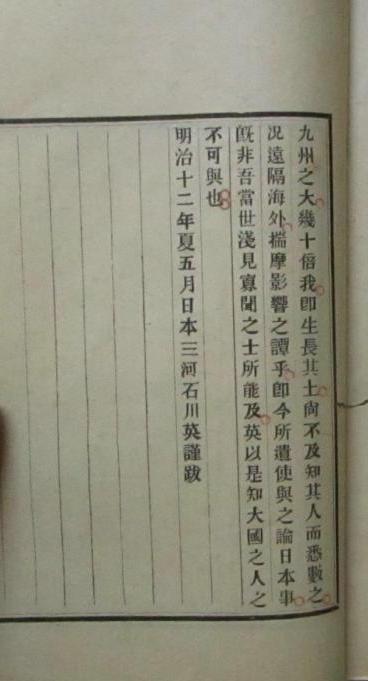 九州之大幾十倍我即生長其土尚不及知其人而悉數之
况遠隔海外揣摩影響之譚乎即今所遣使與之論日本事
既非吾當世淺見寡聞之士所能及英以是知大國之人之
不可與也
明治十二年夏五月日本三河石川英謹跋